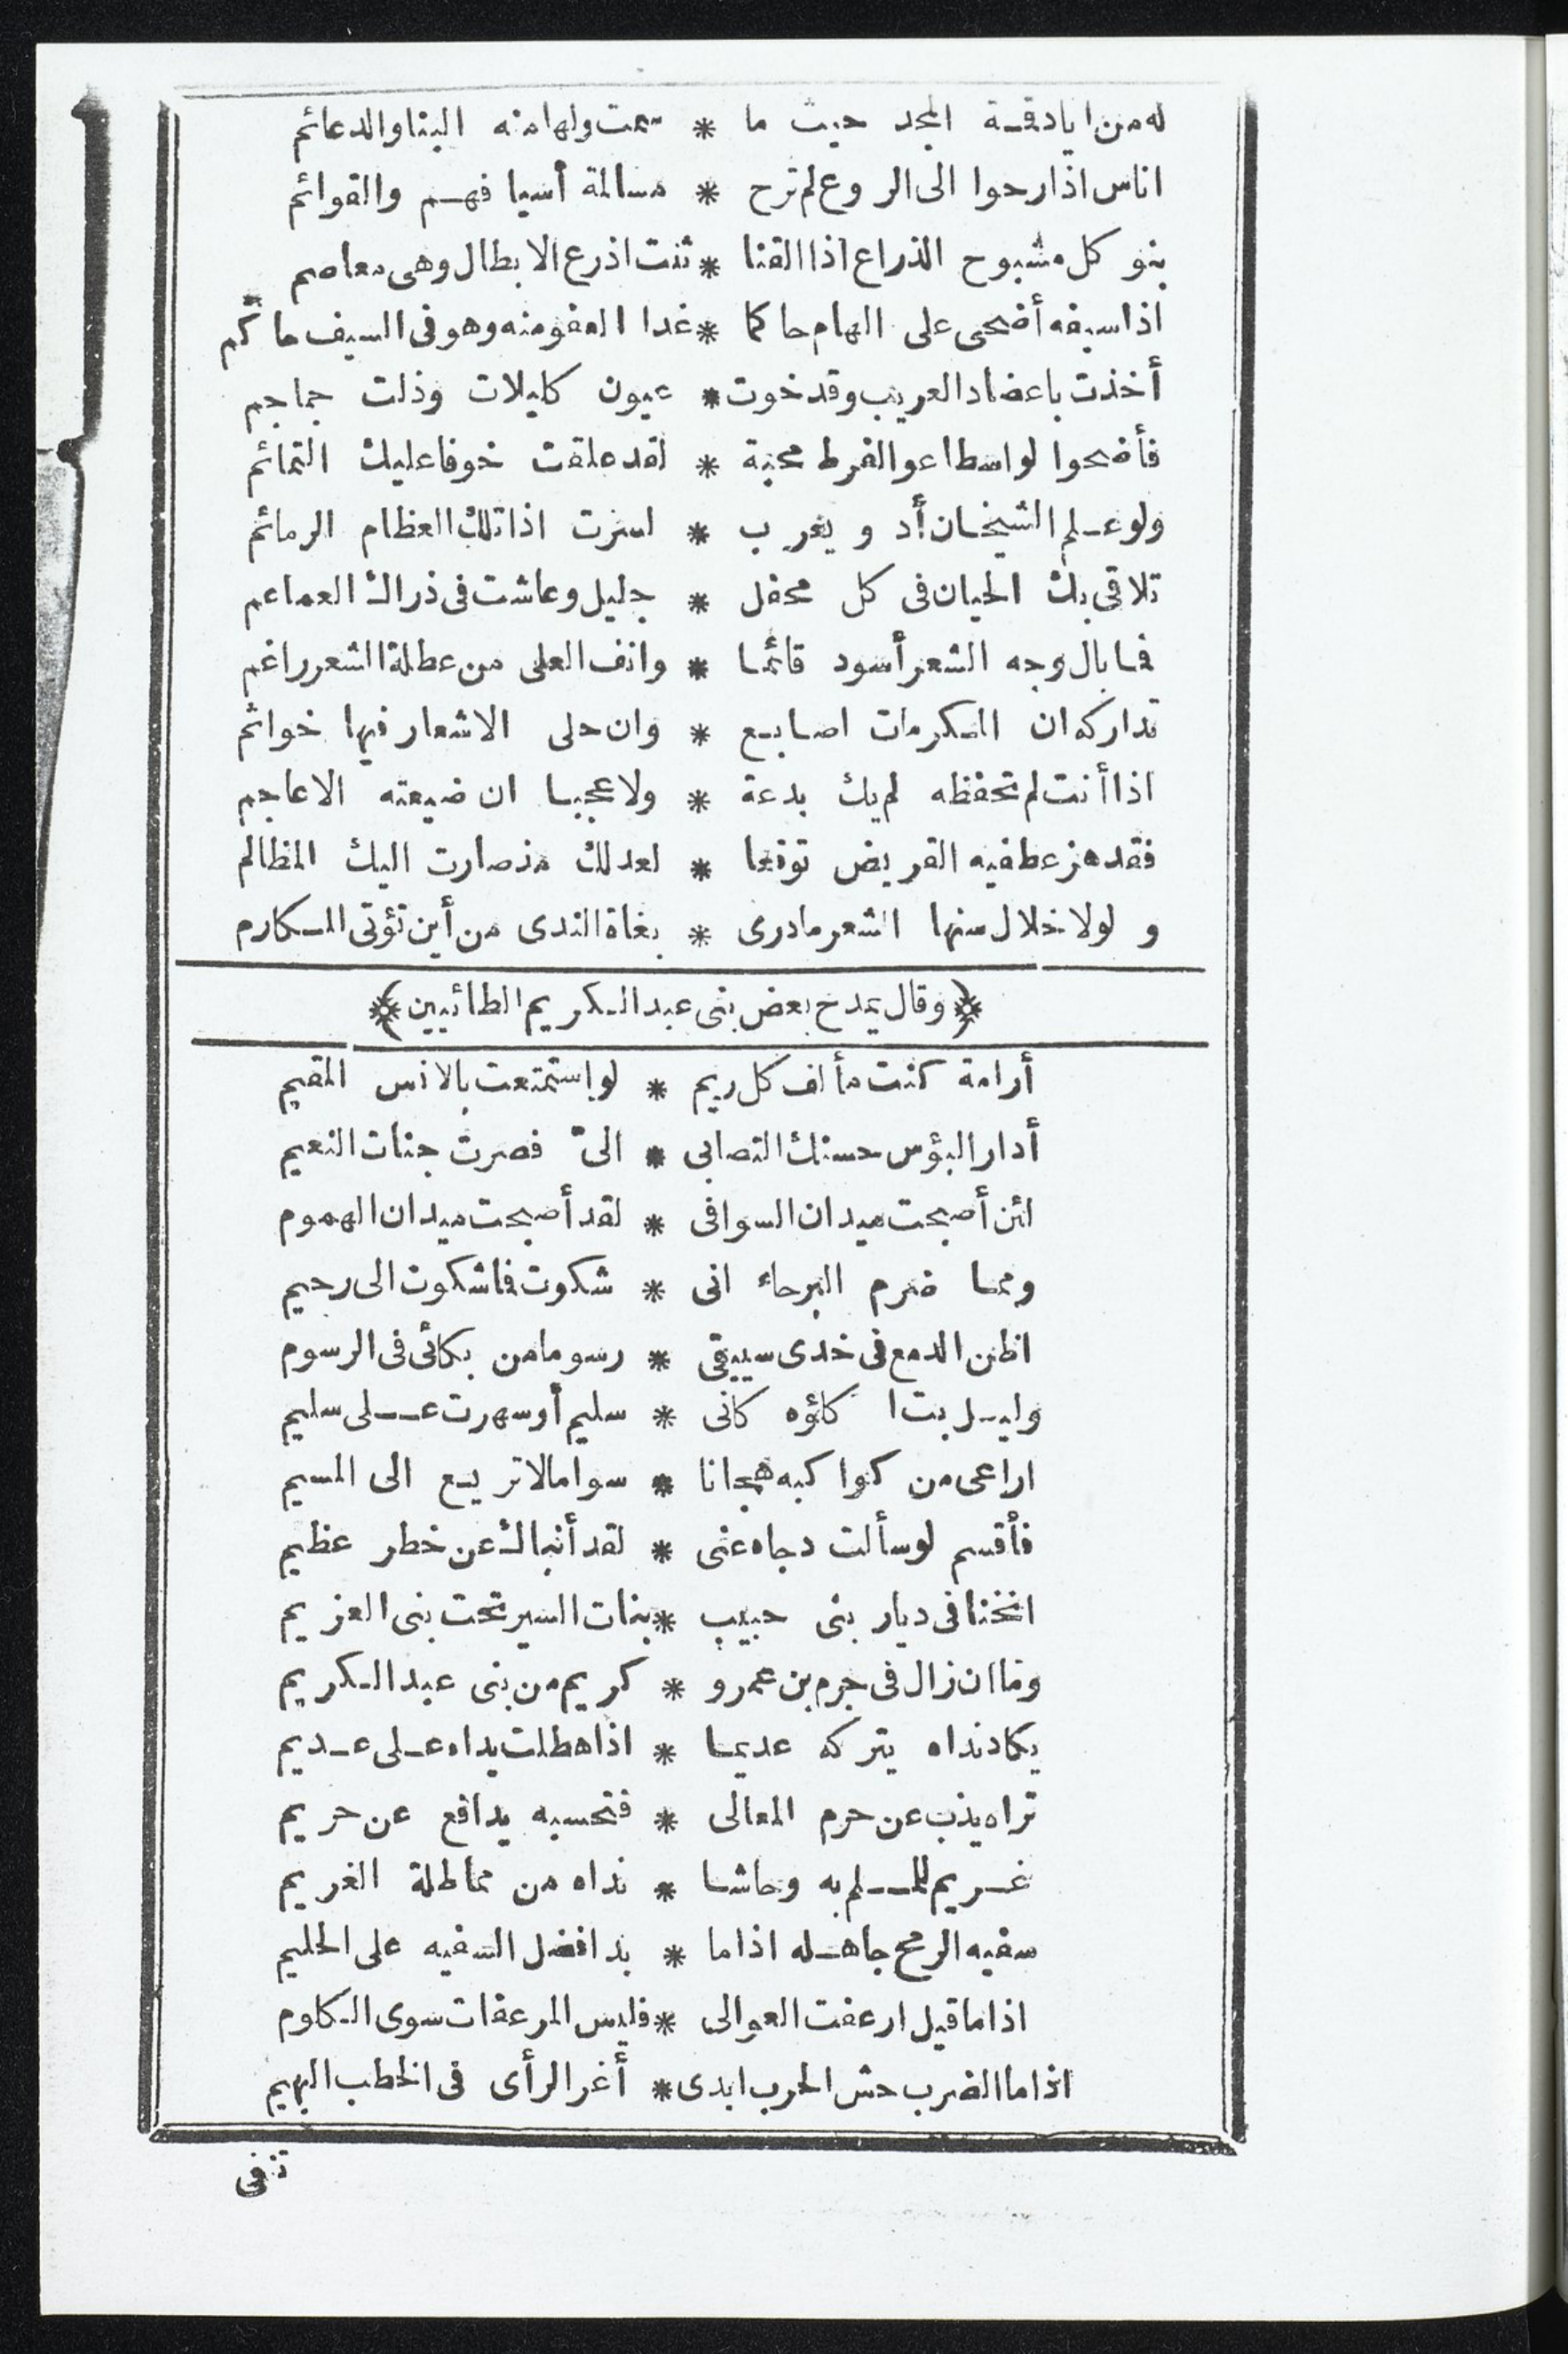 له من ايادقمة المجد حيث ما * سمت ولها منه البنا والدعائم
اناس اذا رحوا الى الروع لم ترح * مسالمة أسيافهم والقوائم
بنو كل مشبوح الذراع اذا القنا * ثنت اذرع الابطال وهى معاصم
اذا سيفه أضحى على الهام حاكما * غدا العفو منه وهو فى السيف حاكم
أخذت باعضاد العريب وقد خوت * عيون كليلات وذلت جماجم
فأضحوا لواسطاعوا لفرط محبة * لقد علقت خوفا عليك التمائم
ولو علم الشيخان أد ويعرب * لسرت اذا تلك العظام الرمائم
تلاقى بك الحيان فى كل محفل * جليل وعاشت فى ذراك العماعم
فما بال وجه الشعر أسود قائما * وانف العلى من عطلة الشعر راغم
تداركه ان المكرمات اصابع * وان حلى الاشعار فيها خواتم
اذا أنت لم تحفظه لم يك بدعة * ولا عجيبا ان ضيعته الاعاجم
فقد هز عطفيه القريض توقعا * لعدلك مذ صارت اليك المظالم
ولولا خلال سنها الشعر ما درى * بغاة الندى من أين تؤتى المكارم
﴿وقال يمدح بعض بنى عبد الكريم الطائيين﴾
أرامة كنت مألف كل ريم * لو استمتعت بالانس المقيم
أدار البؤس حسنك التصابى * الىّ فصرت جنات النعيم
لئن أصبحت ميدان السوافى * لقد أصبحت ميدان الهموم
ومما ضرم البرحاء انى * شكوت فما شكوت الى رحيم
اظن الدمع فى خدى سيبقى * رسوما من بكائى فى الرسوم
وليل بت اكلؤه كانى * سليم أو سهرت على سليم
اراعى من كواكبه هجانا * سواما لا تريع الى المسيم
فأقسم لو سألت دجاه عنى * لقد أنباك عن خطر عظيم
انخنا فى ديار بنى حبيب * بنات السير تحت بنى العزيم
وما ان زال فى جرم بن عمرو * كريم من بنى عبد الكريم
يكاد نداه يتركه عديما * اذا هطلت يداه على عديم
تراه يذب عن حرم المعالى * فتحسبه يدافع عن حريم
غريم للملم به وحاشا * نداه من مماطلة الغريم
سفيه الرمح جاهله اذا ما * بدا فضل السفيه على الحليم
اذا ما قيل ارعفت العوالى * فليس المرعفات سوى الكلوم
اذا ما الضرب حش الحرب ابدى * أغر الرأى فى الخطب البهيم
تثفى